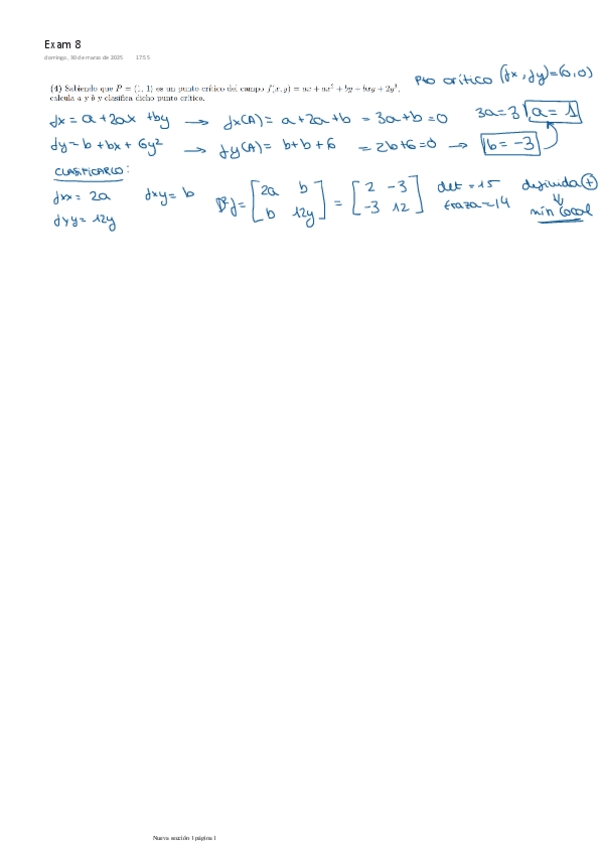 Exam 8
domingo, 30 de marzo de 2025 17:55
Pto crítico (fx, fy)=(0,0)
(4) Sabiendo que P = (1, 1) es un punto crítico del campo f(x, y) = ax + ax² + by + bxy + 2y³,
calcula a y b y clasifica dicho punto crítico.
fx = a + 2ax + by → fx(A) = a + 2a + b = 3a + b = 0 3a = 3 a = 1
fy = b + bx + 6y² → fy(A) = b + b + 6 = 2b + 6 = 0 → b = -3
CLASIFICARLO:
fxx = 2a fxy = b D²f = [2a b; b 12y] = [2 -3; -3 12] det = 15 definida (+)
fyy = 12y traza = 14 ⇓
mín local
Nueva sección 1 página 1